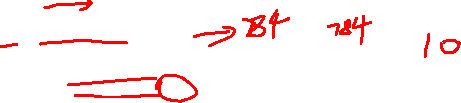 → 784 784 10